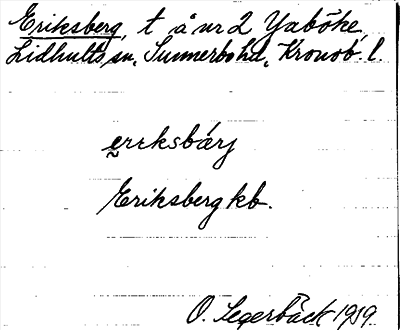 Eriksberg, t å nr 2 Yaböke
Lidhults sn, Sunnerbo hd, Kronob. l.
erıksbárj
Eriksberg kb.
O. Segerbäck 1919.